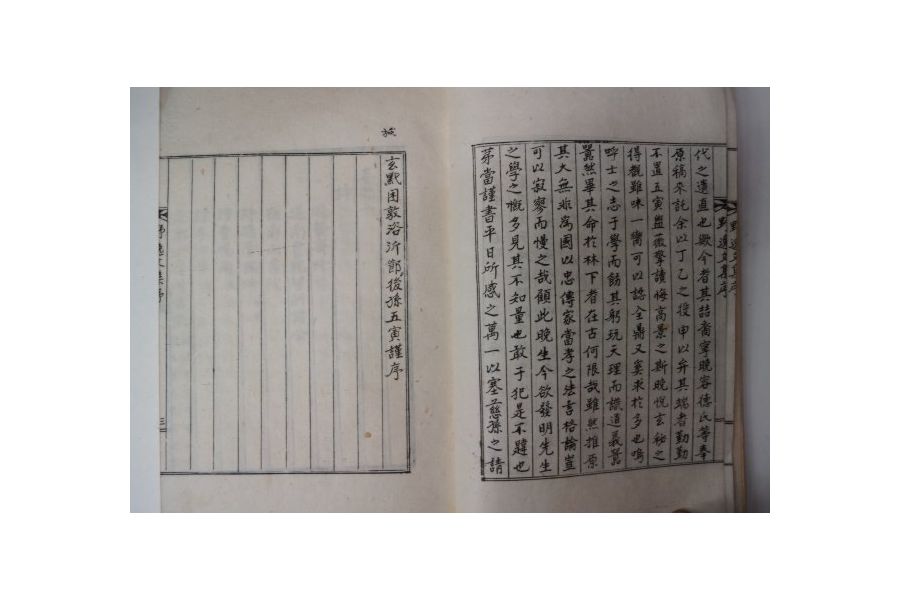 野逸文集序
代之遺直也歟今者其喆裔寧晩容德氏等奉
原稿來託余以丁乙之授申以弁其端者勤勤
不置五寅盥薇擎讀悔高景之斯晩悅玄秘之
得觀雖味一臠可以認全鼎又奚求於多也嗚
呼士之志于學而飭其躬玩天理而識道義囂
囂然畢其命於林下者在古何限哉雖然推原
其大無非爲國以忠傳家當孝之法言格論豈
可以寂寥而慢之哉顧此晩生今欲發明先生
之學之槪多見其不知量也敢于犯是不韙也
第當謹書平日所感之萬一以塞慈孫之請
玄黓困敦洛沂節後孫五寅謹序
野逸文集序
三